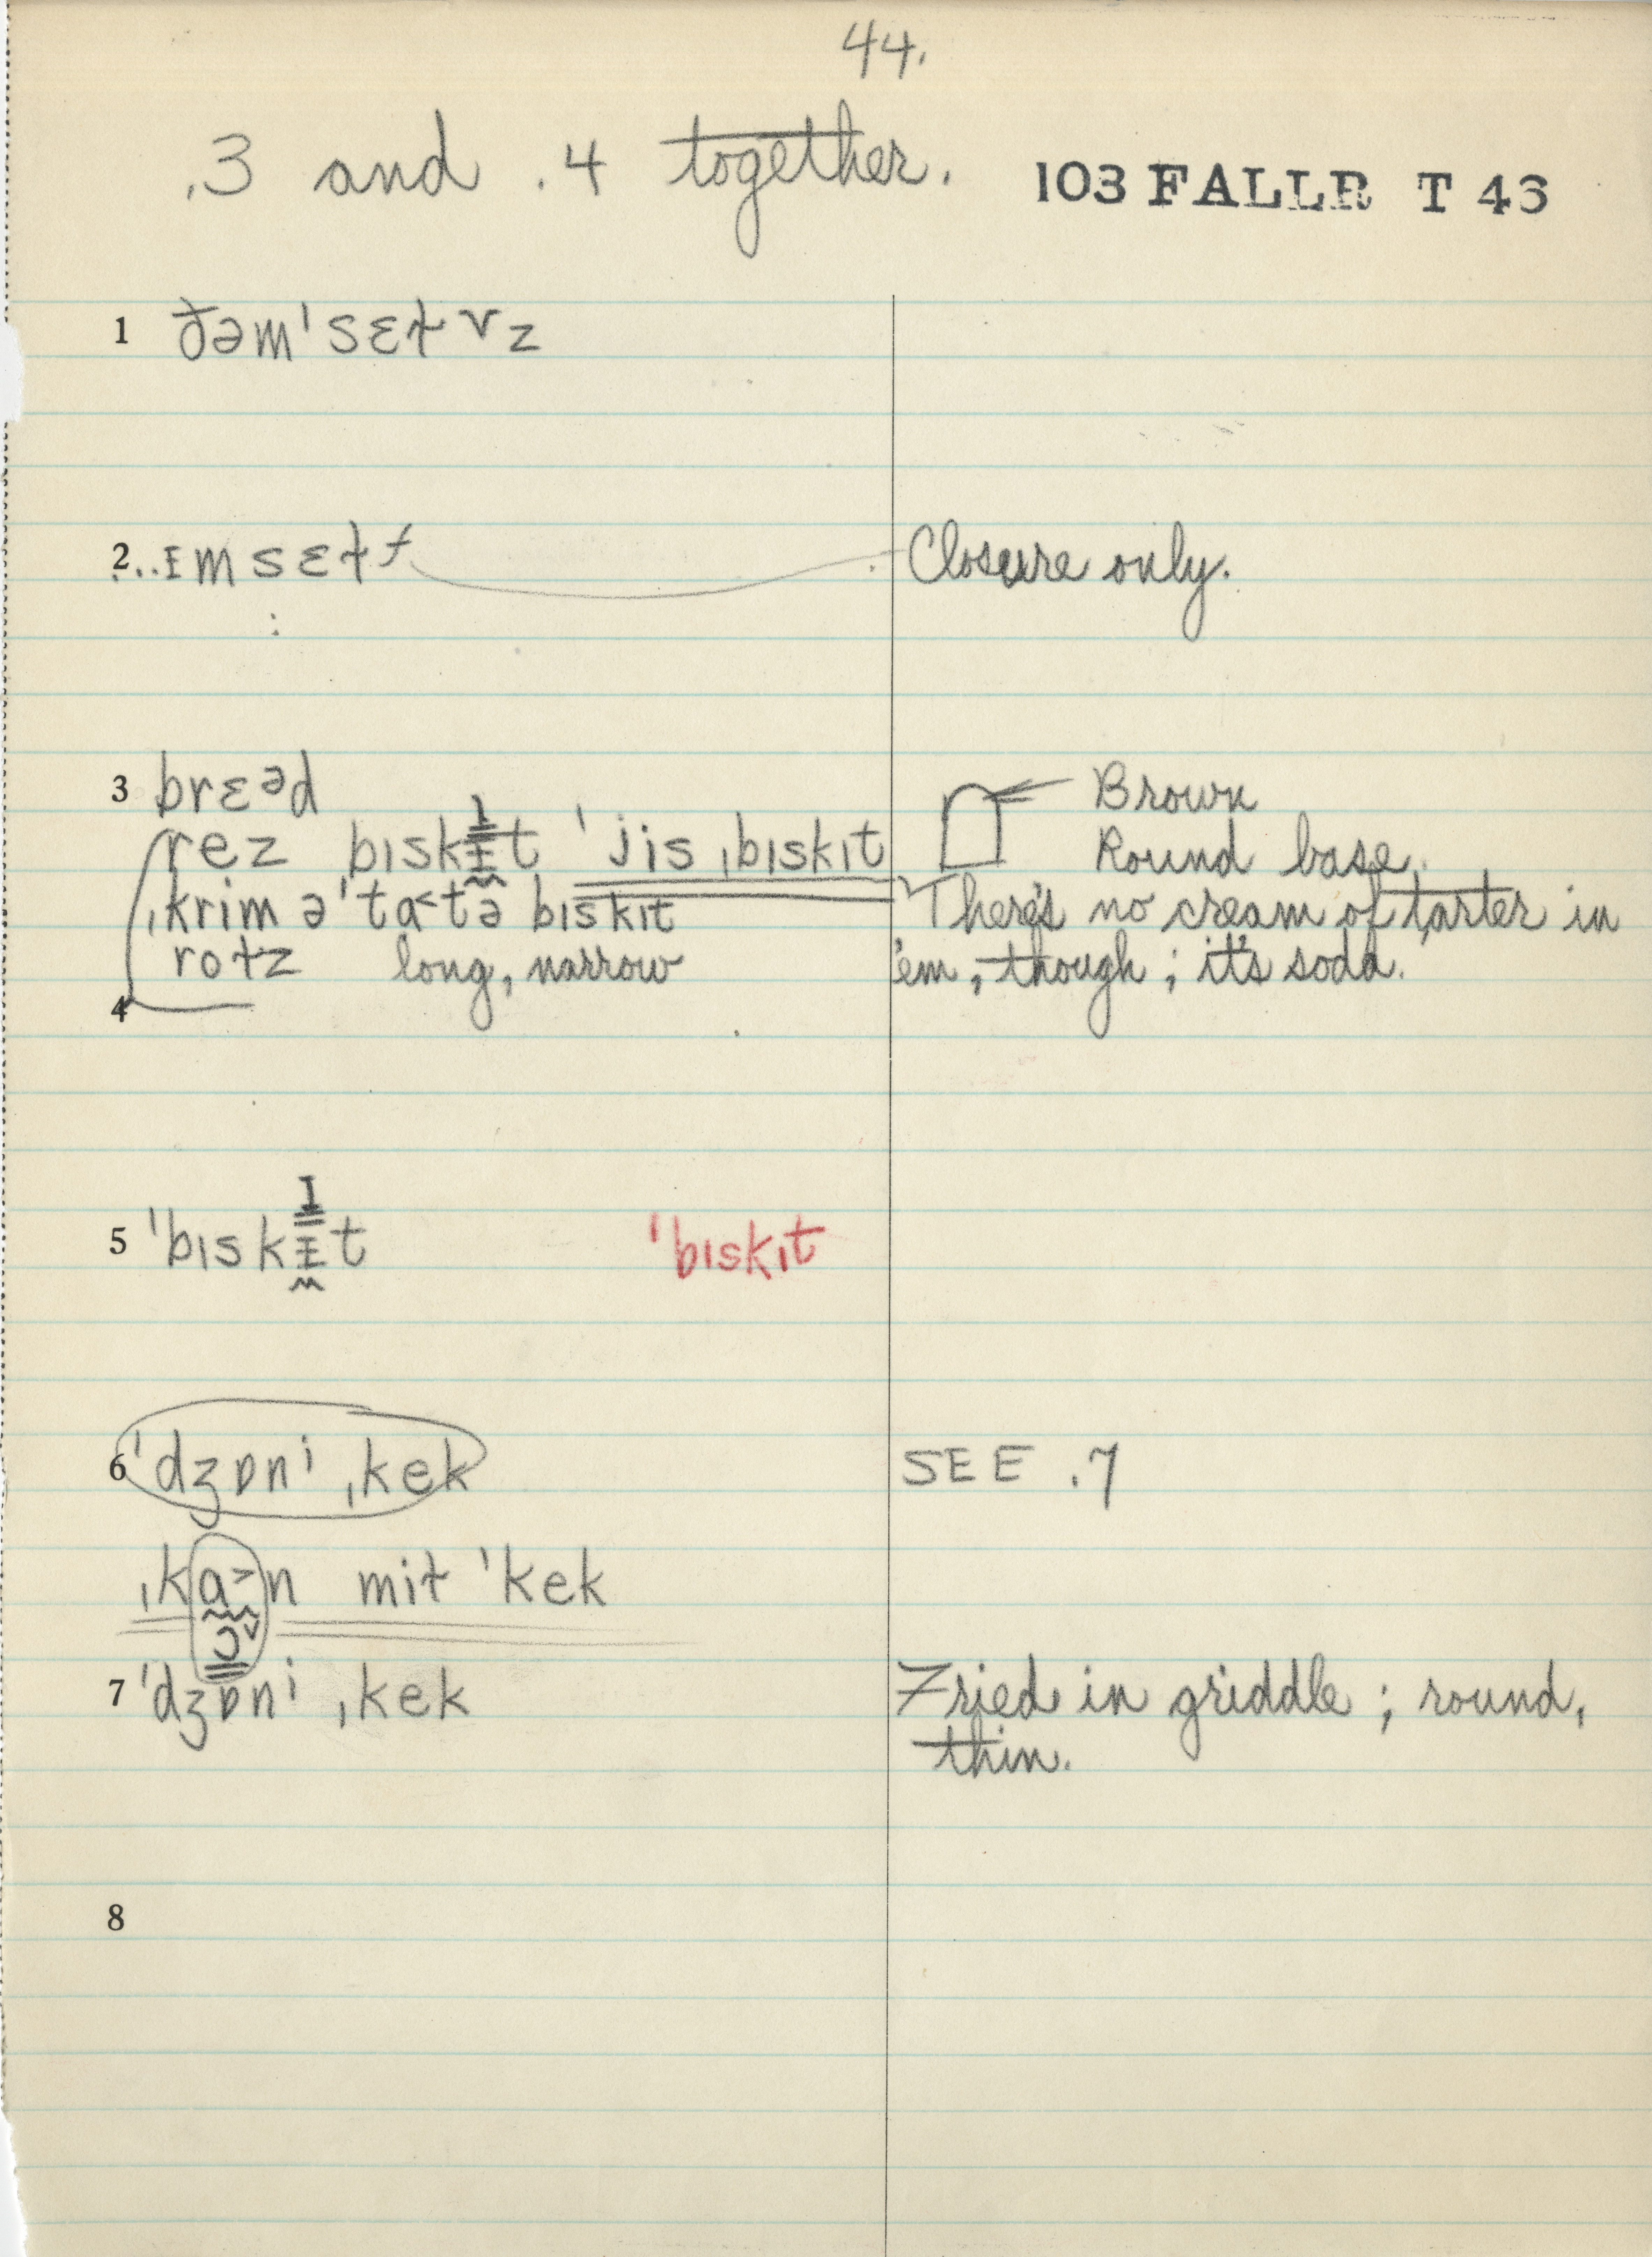 44.
.3 and .4 together.
103 FALLR T 43
1 ðəmˈsɛɫvz
2...ɪmsɛɫf Closure only.
3 brɛᵊd Brown
rez bɪskɪt ˈjis ˌbɪskɪt Round base.
ˌkrim əˈta<tə bɪskɪt There's no cream of tarter in
roɫz long, narrow 'em, though; it's soda.
4
5 ˈbɪskɪt ˈbɪskɪt
6 ˈdʒɒnⁱ ˌkek SEE .7
ˌka>n miɫ ˈkek
ɔ˅
7 ˈdʒɒnⁱ ˌkek Fried in griddle; round,
thin.
8